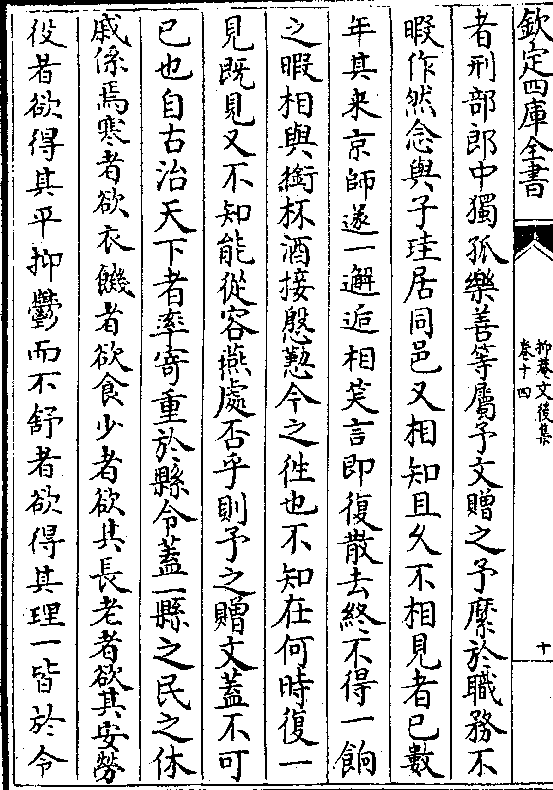 欽定四庫全書
抑菴文後集
卷十四
十
者刑部郎中獨孤樂善等屬予文贈之予縻於職務不
暇作然念與子珪居同邑又相知且久不相見者已數
年其来京師遂一邂逅相笑言即復散去終不得一餉
之暇相與銜杯酒接慇懃今之徃也不知在何時復一
見既見又不知能從容燕處否乎則予之贈文蓋不可
已也自古治天下者率寄重於縣令蓋一縣之民之休
戚係焉寒者欲衣饑者欲食少者欲其長老者欲其安勞
役者欲得其平抑鬱而不舒者欲得其理一皆於令